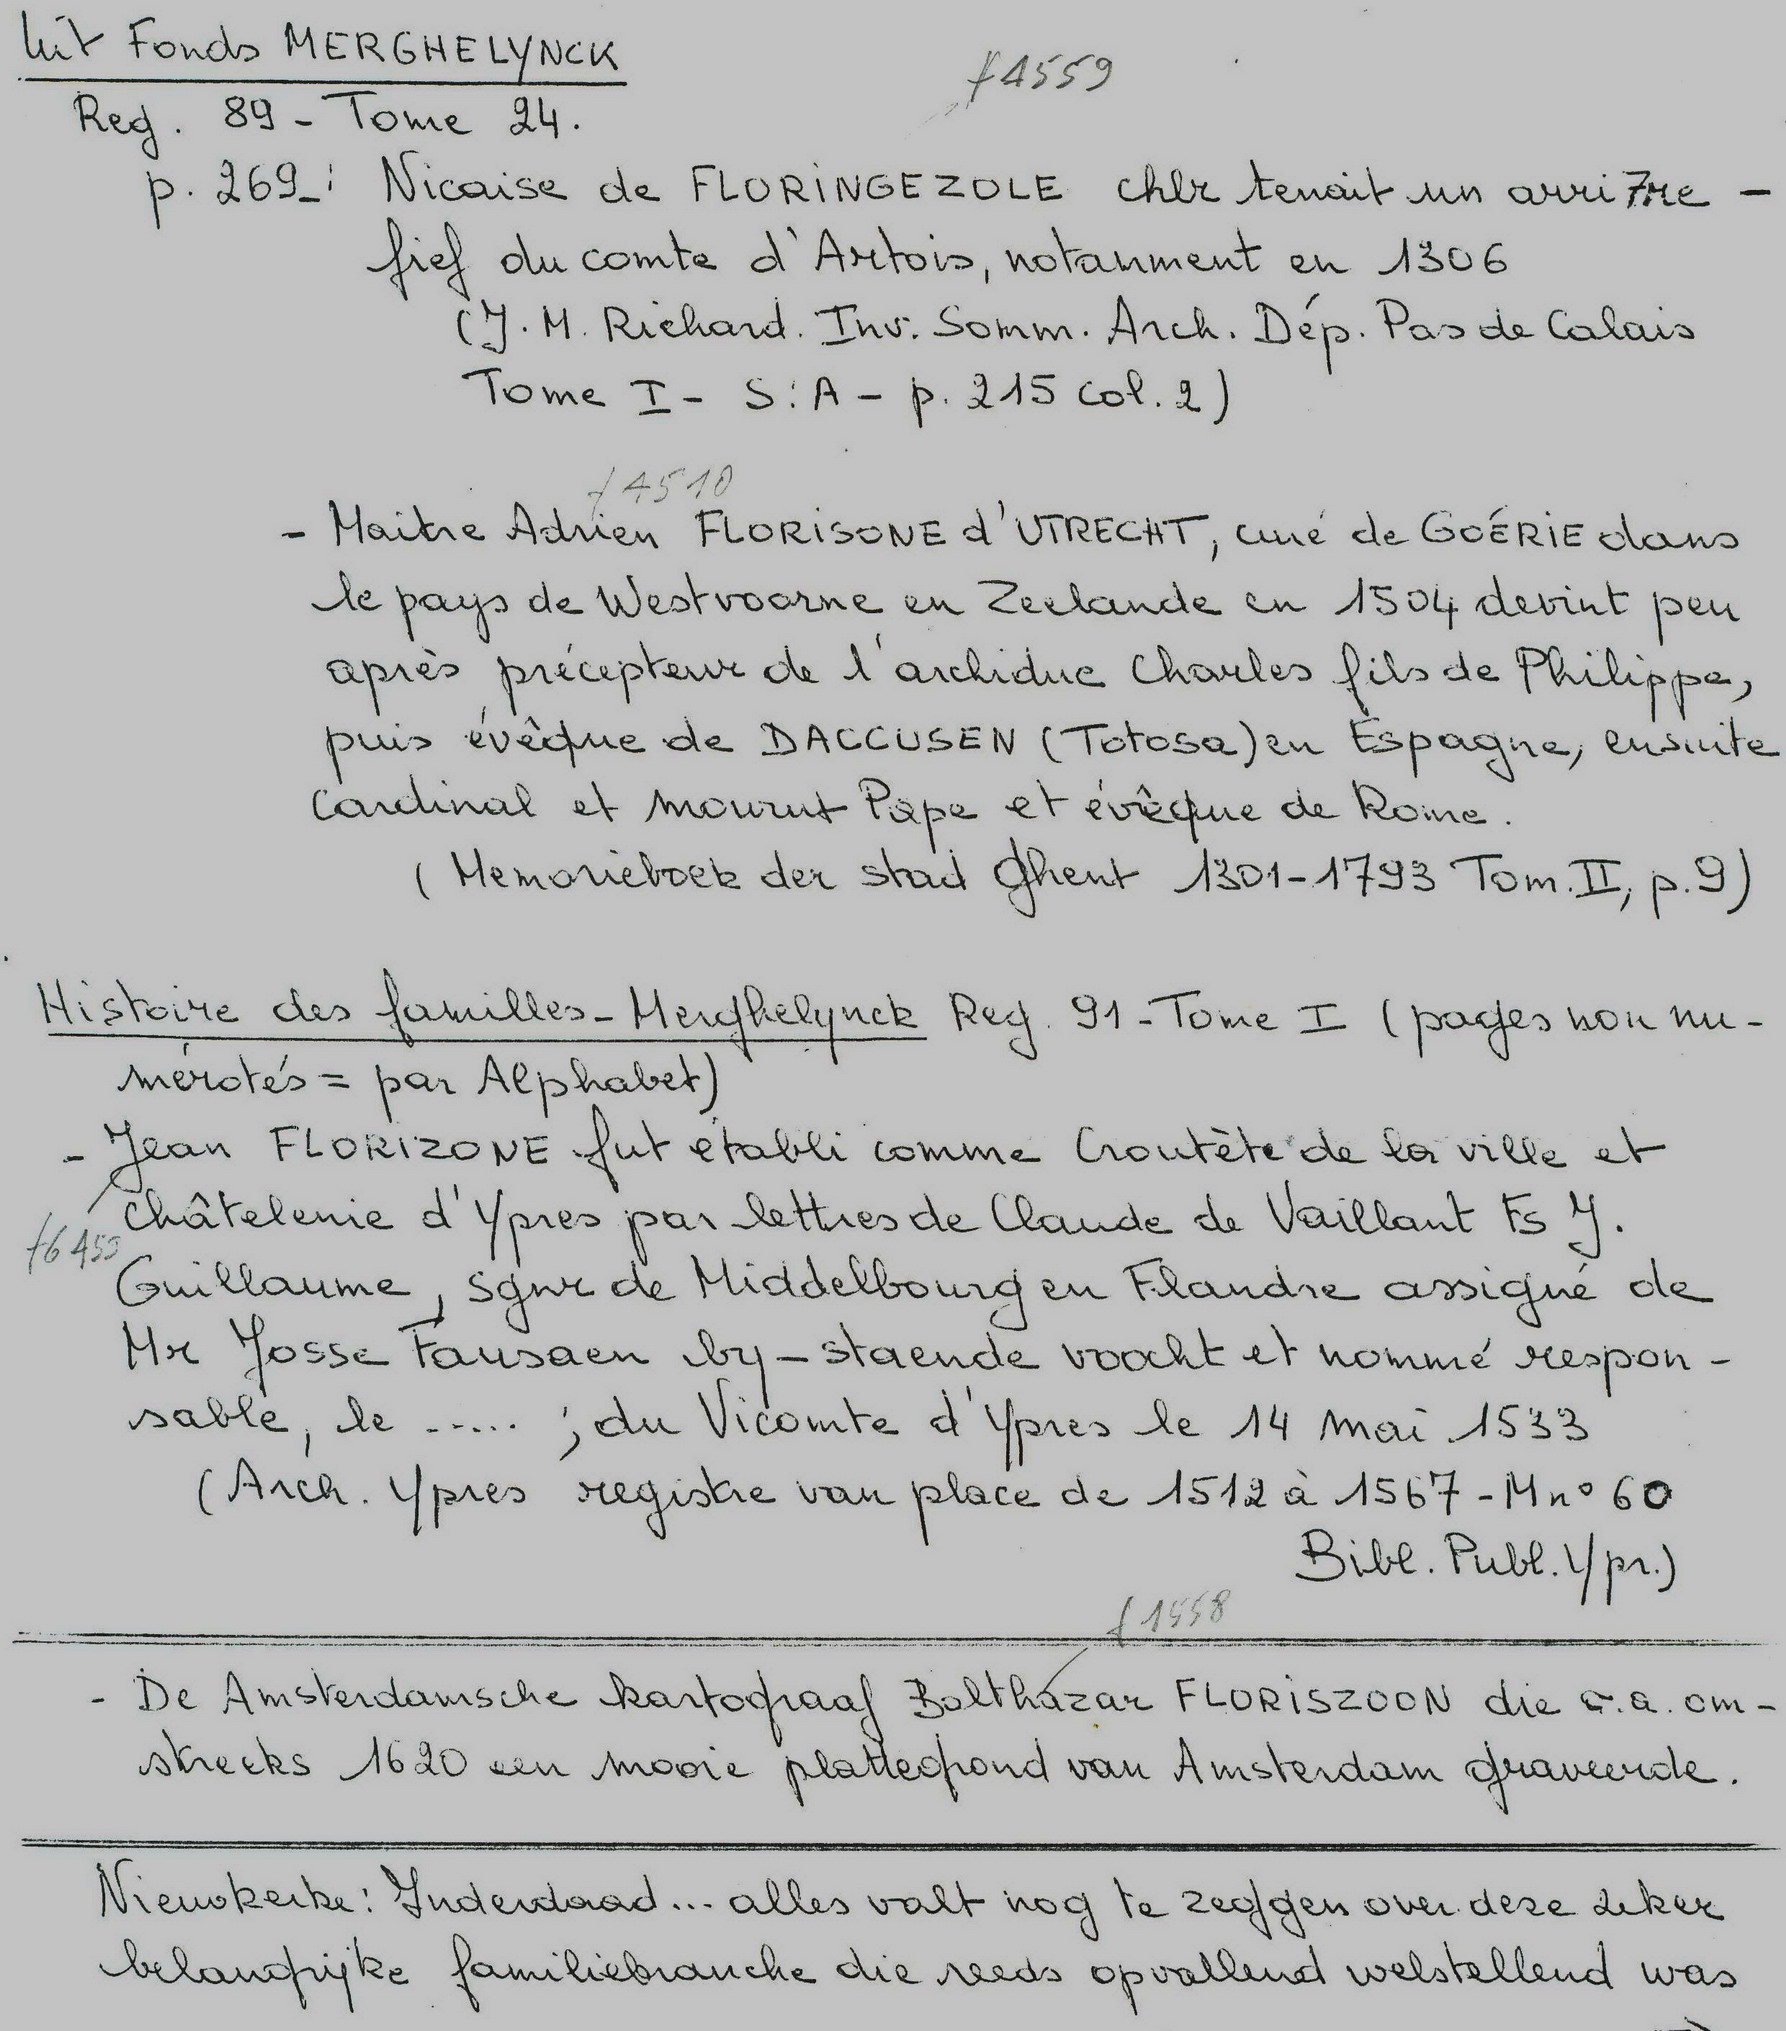 Uit Fonds MERGHELYNCK
f 4559
Reg. 89 - Tome 24.
p. 269 -: Nicaise de FLORINGEZOLE chlr tenait un arri7re -
fief du comte d'Artois, notanment en 1306
(J. M. Richard. Inv. Somm. Arch. Dép. Pas de Calais
Tome I - S: A - p. 215 col. 2)
f 4510
- Maitre Adrien FLORISONE d'UTRECHT, curé de GOÉRIE dans
le pays de Westvoorne en Zeelande en 1504 devint peu
après précepteur de l'archiduc Charles fils de Philippe,
puis évêque de DACCUSEN (Totosa) en Espagne, ensuite
Cardinal et mourut Pape et évêque de Rome.
( Memorieboek der stad Ghent 1301-1793 Tom. II, p. 9)
Histoire des familles - Merghelynck Reg. 91 - Tome I (pages non nu-
mérotés = par Alphabet)
- Jean FLORIZONE fut établi comme Croutète de la ville et
Châtelenie d'Ypres par lettres de Claude de Vaillant Fs J.
f 6453
Guillaume, sgnr de Middelbourg en Flandre assigné de
Mr Josse Fausaen by-staende voocht et nommé respon-
sable, le ..... ; du Vicomte d'Ypres le 14 mai 1533
(Arch. Ypres registre van place de 1512 à 1567 - M n° 60
Bibl. Publ. Ypr.)
f 1558
- De Amsterdamsche kartograaf Balthazar FLORISZOON die o.a. om-
streeks 1620 een mooie plattegrond van Amsterdam graveerde.
Nieuwkerke: Inderdaad... alles valt nog te zeggen over deze zeker
belangrijke familiebranche die reeds opvallend welstellend was